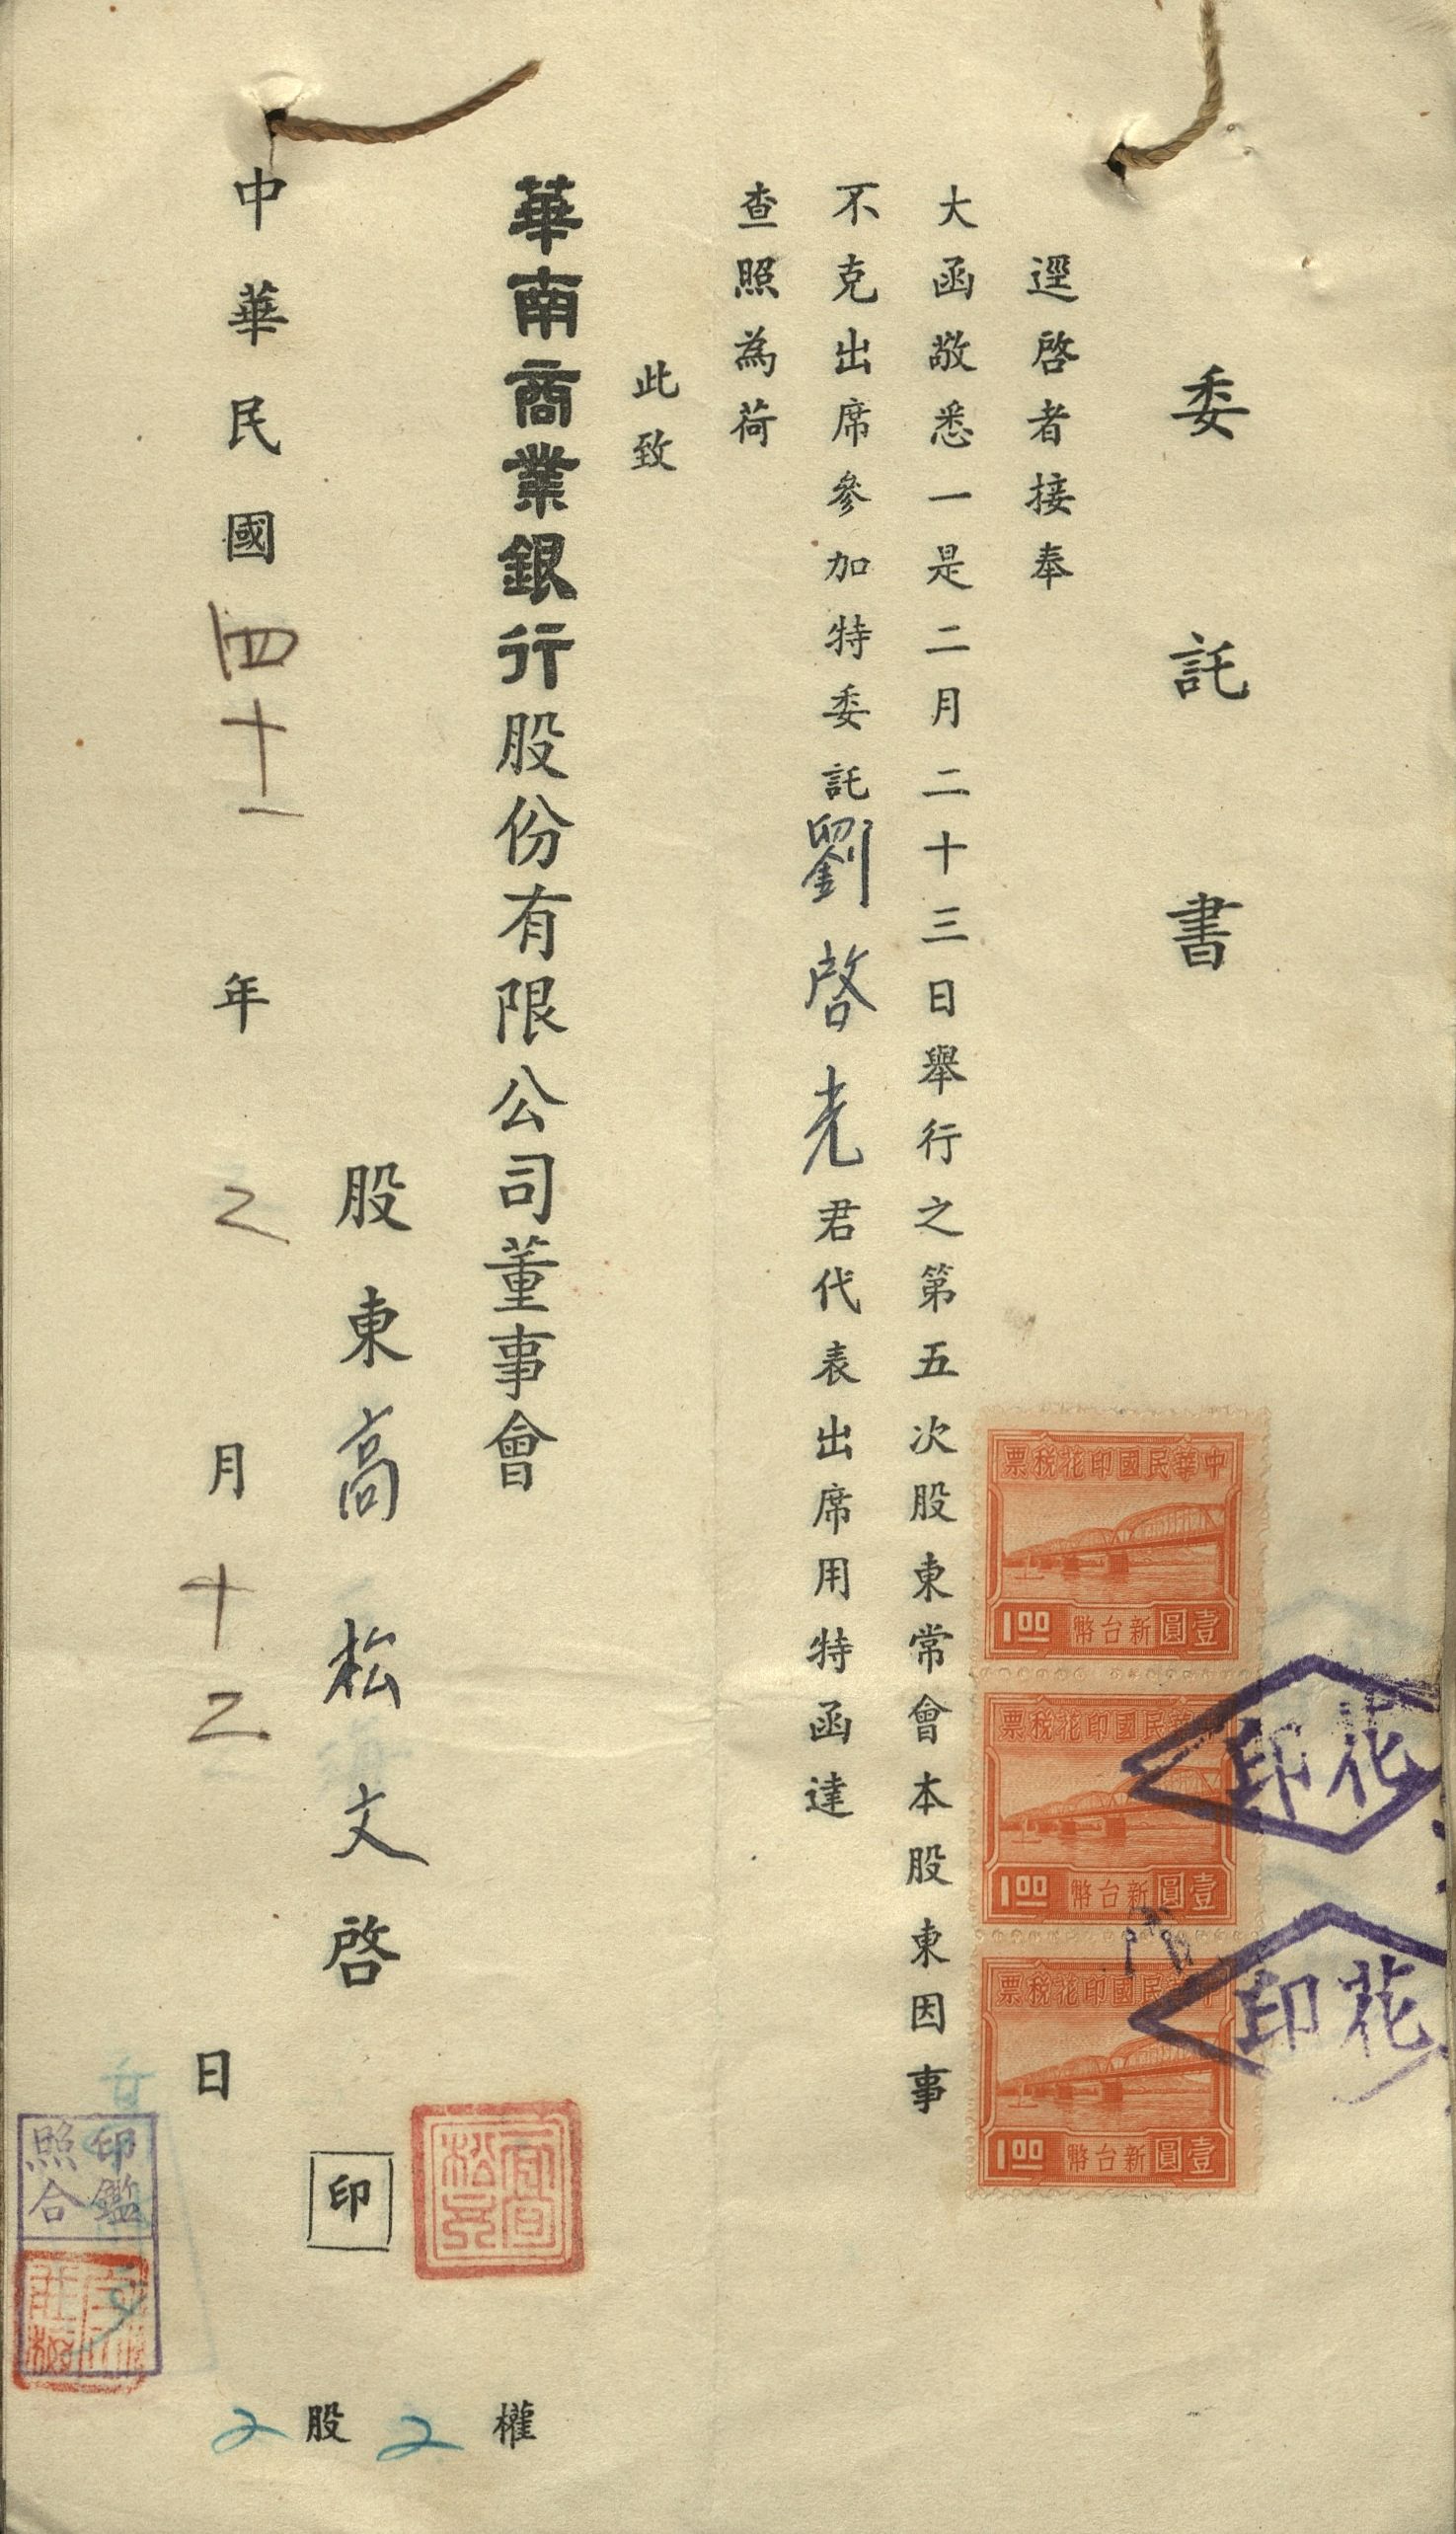 委託書
逕啓者接奉
大函敬悉一是二月二十三日舉行之第五次股東常會本股東因事
不克出席參加特委託劉啓光君代表出席用特函達
查照為荷
此致
華南商業銀行股份有限公司董事會
股東高松文啓
印
中華民國四十一年2月十二日
權2股2
中華民國印花稅票
壹圓新台幣 1.00
中華民國印花稅票
壹圓新台幣 1.00
中華民國印花稅票
壹圓新台幣 1.00
花印
花印
印鑑
照合